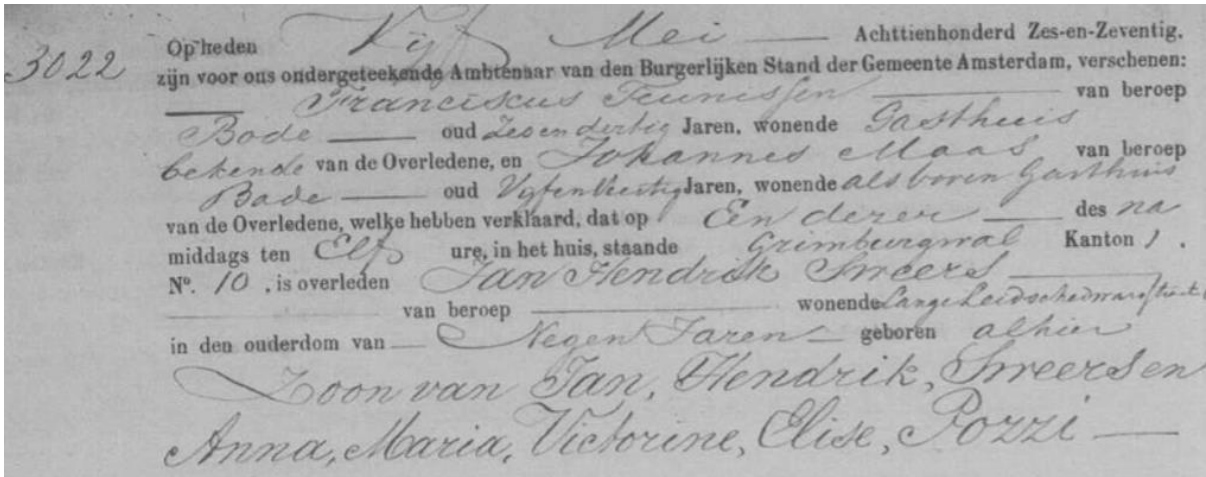 3022 Op heden Vijf Mei Achttienhonderd Zes-en-Zeventig,
zijn voor ons ondergeteekende Ambtenaar van den Burgerlijken Stand der Gemeente Amsterdam, verschenen:
Franciscus Teunissen van beroep
Bode oud Zesendertig Jaren, wonende Gasthuis
bekende van de Overledene, en Johannes Maas van beroep
Bode oud Vijfenveertig Jaren, wonende als boven Gasthuis
van de Overledene, welke hebben verklaard, dat op Een dezer des na
middags ten Elf ure, in het huis, staande Grimburgwal Kanton 1.
No. 10, is overleden Jan Hendrik Smeers
van beroep wonende Lange Leidschedwarsstraat
in den ouderdom van Negen Jaren geboren alhier
Zoon van Jan, Hendrik, Smeers en
Anna, Maria, Victorine, Elise, Pozzi